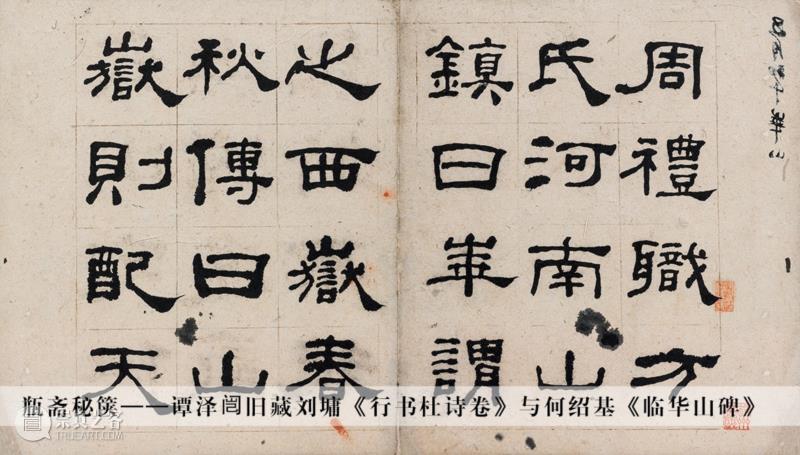 周禮職方
氏河南山
鎮曰崋謂
之西嶽春
秋傳曰山
嶽則配天
瓶斋秘箧——谭泽闿旧藏刘墉《行书杜诗卷》与何绍基《临华山碑》
崇真艺客